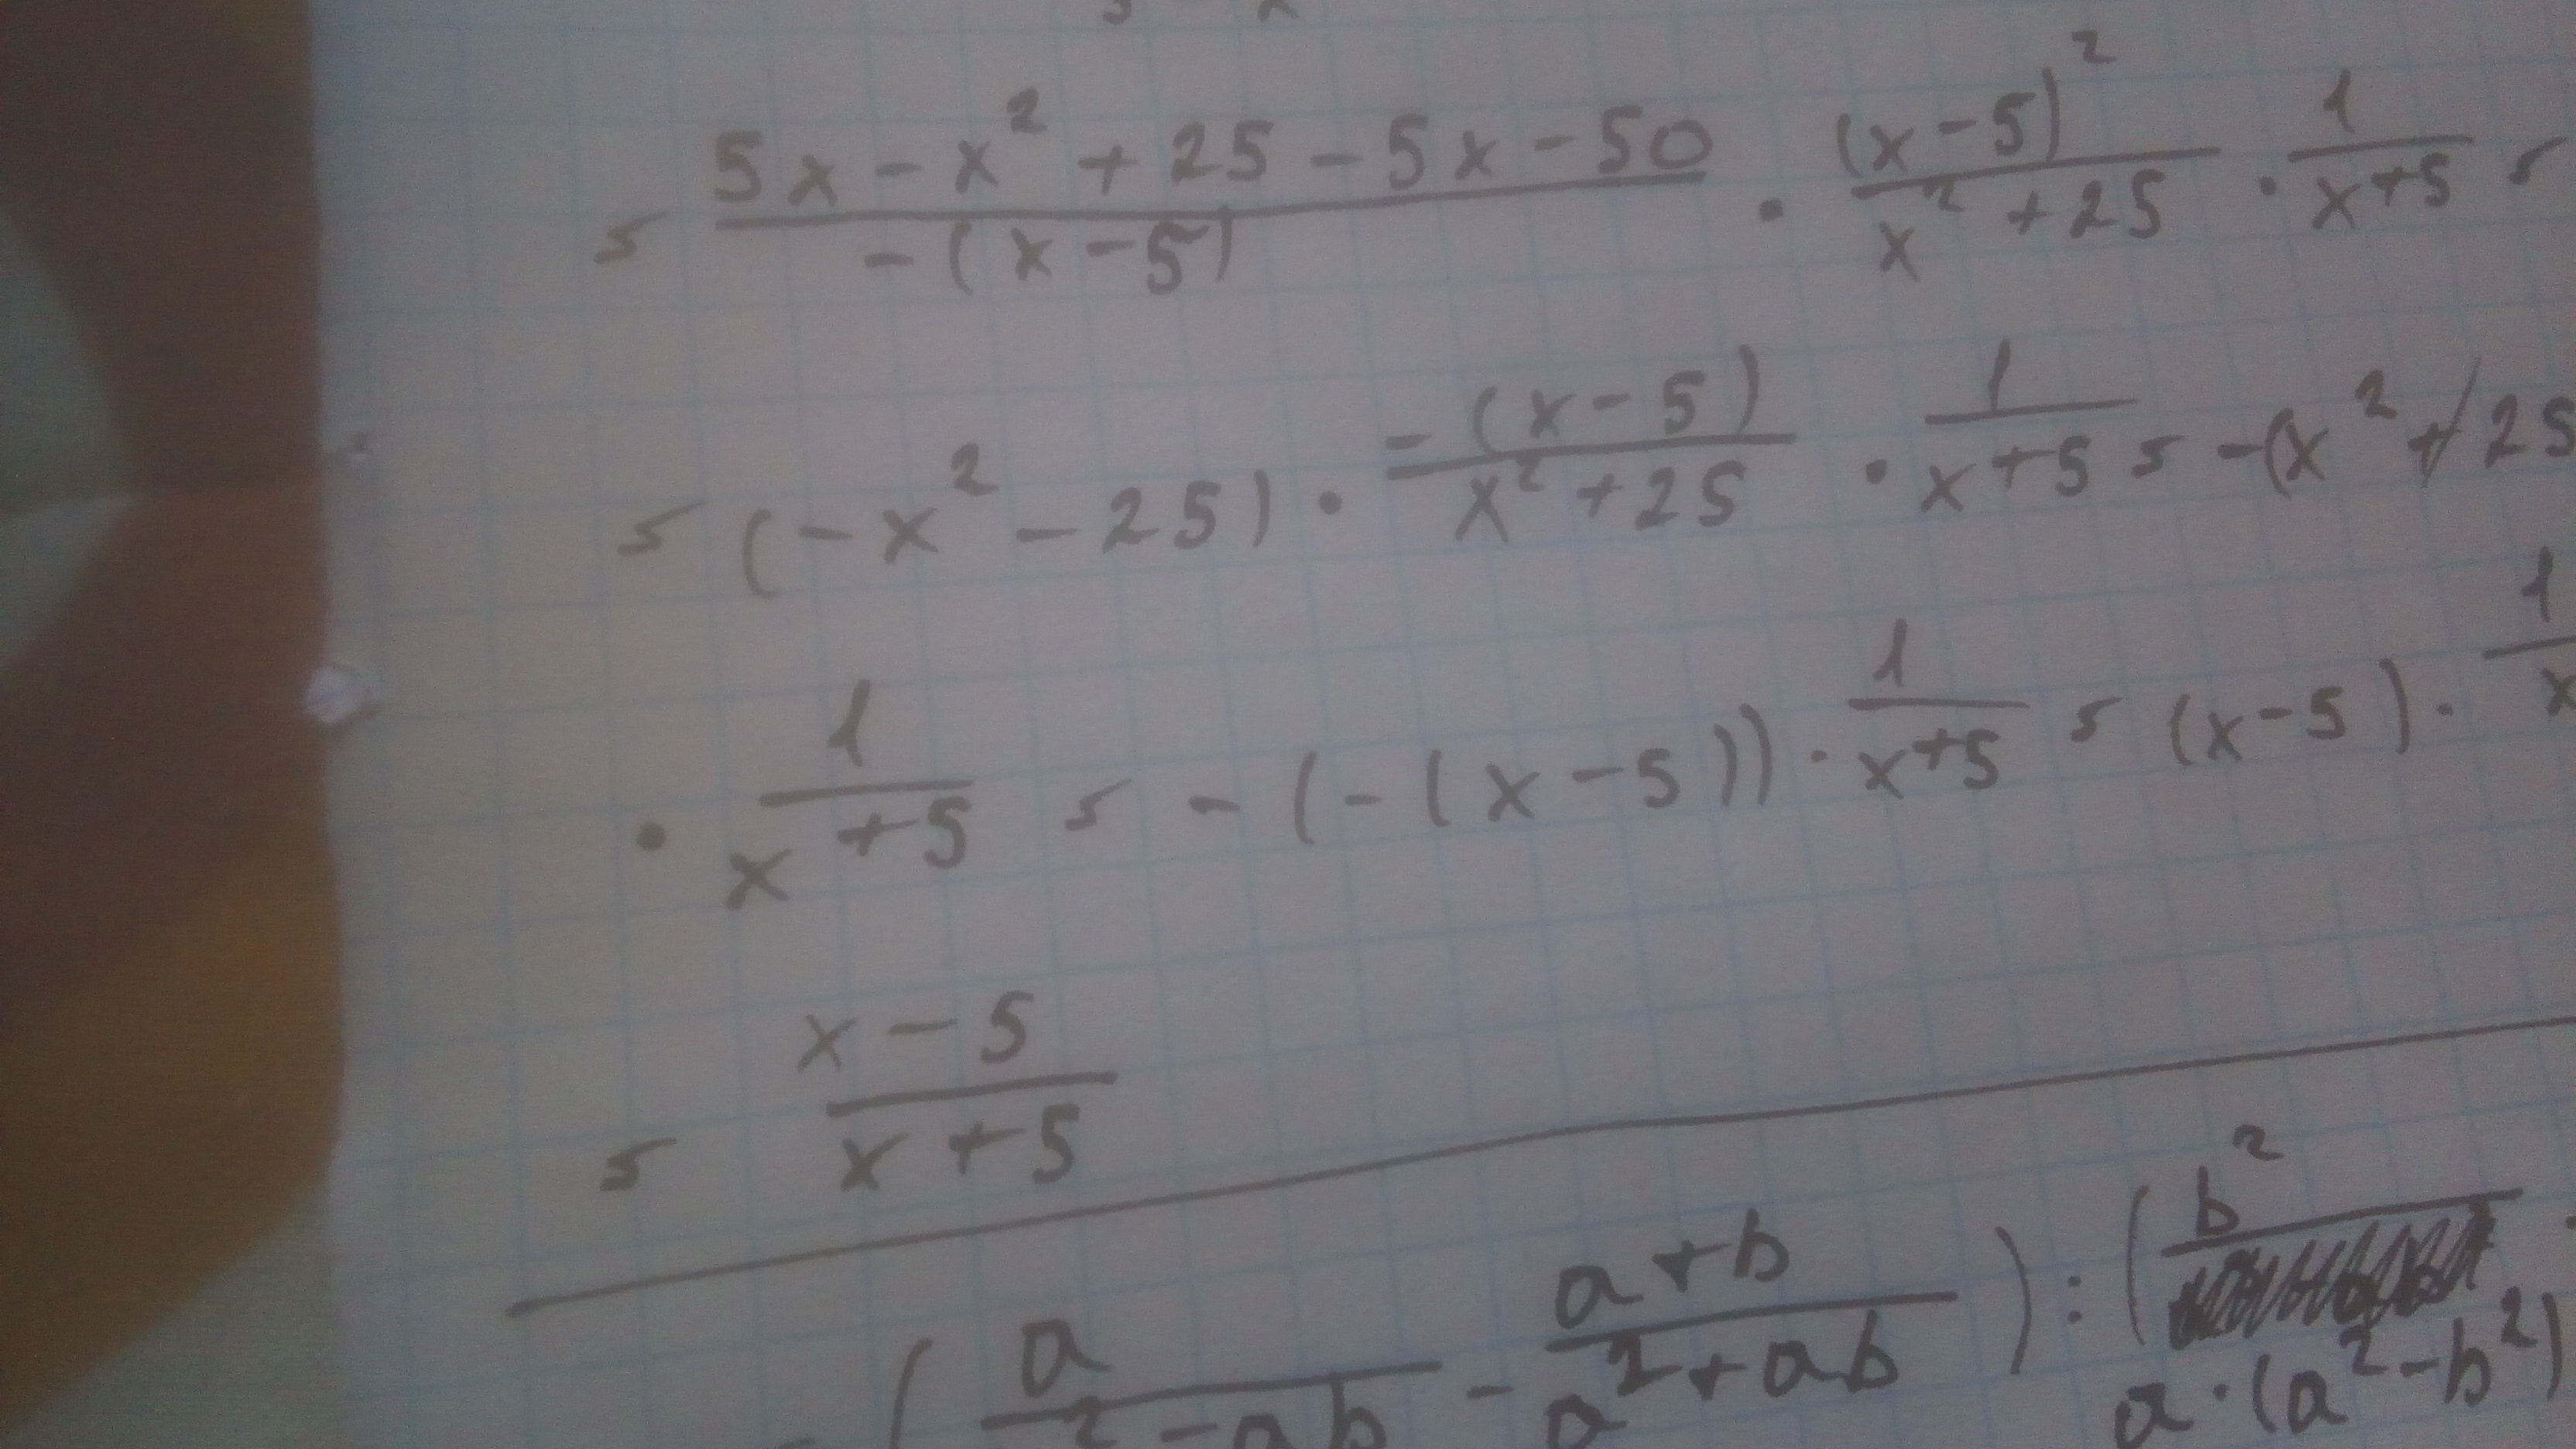 = (5x - x² + 25 - 5x - 50)/(-(x - 5)) · (x - 5)²/(x² + 25) · 1/(x + 5) =
= (-x² - 25) · (-(x - 5))/(x² + 25) · 1/(x + 5) = -(x² + 25
· 1/(x + 5) = -(-(x - 5)) · 1/(x + 5) = (x - 5) · 1/x
= (x - 5)/(x + 5)
(a/(² - ab) - (a + b)/(a² + ab)) : (b²/(a · (a² - b²)